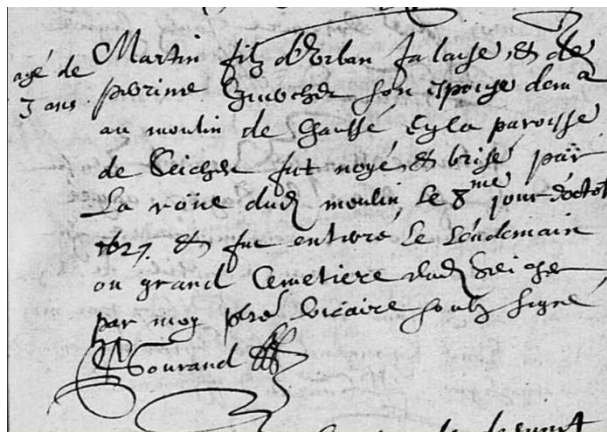 agé de
3 ans
Martin filz d'Orban Falaise et de
perrine Guischer son espouse dem.a
au moulin de Chaussé en la paroisse
de Seiches fut noyé et brisé par
La roüe dud moulin le 8me jour d'octob
1627 et fut enterré le Lendemain
ou grand Cemetiere dud Seiches
par moy pbre vicaire soubz signé
Gourand